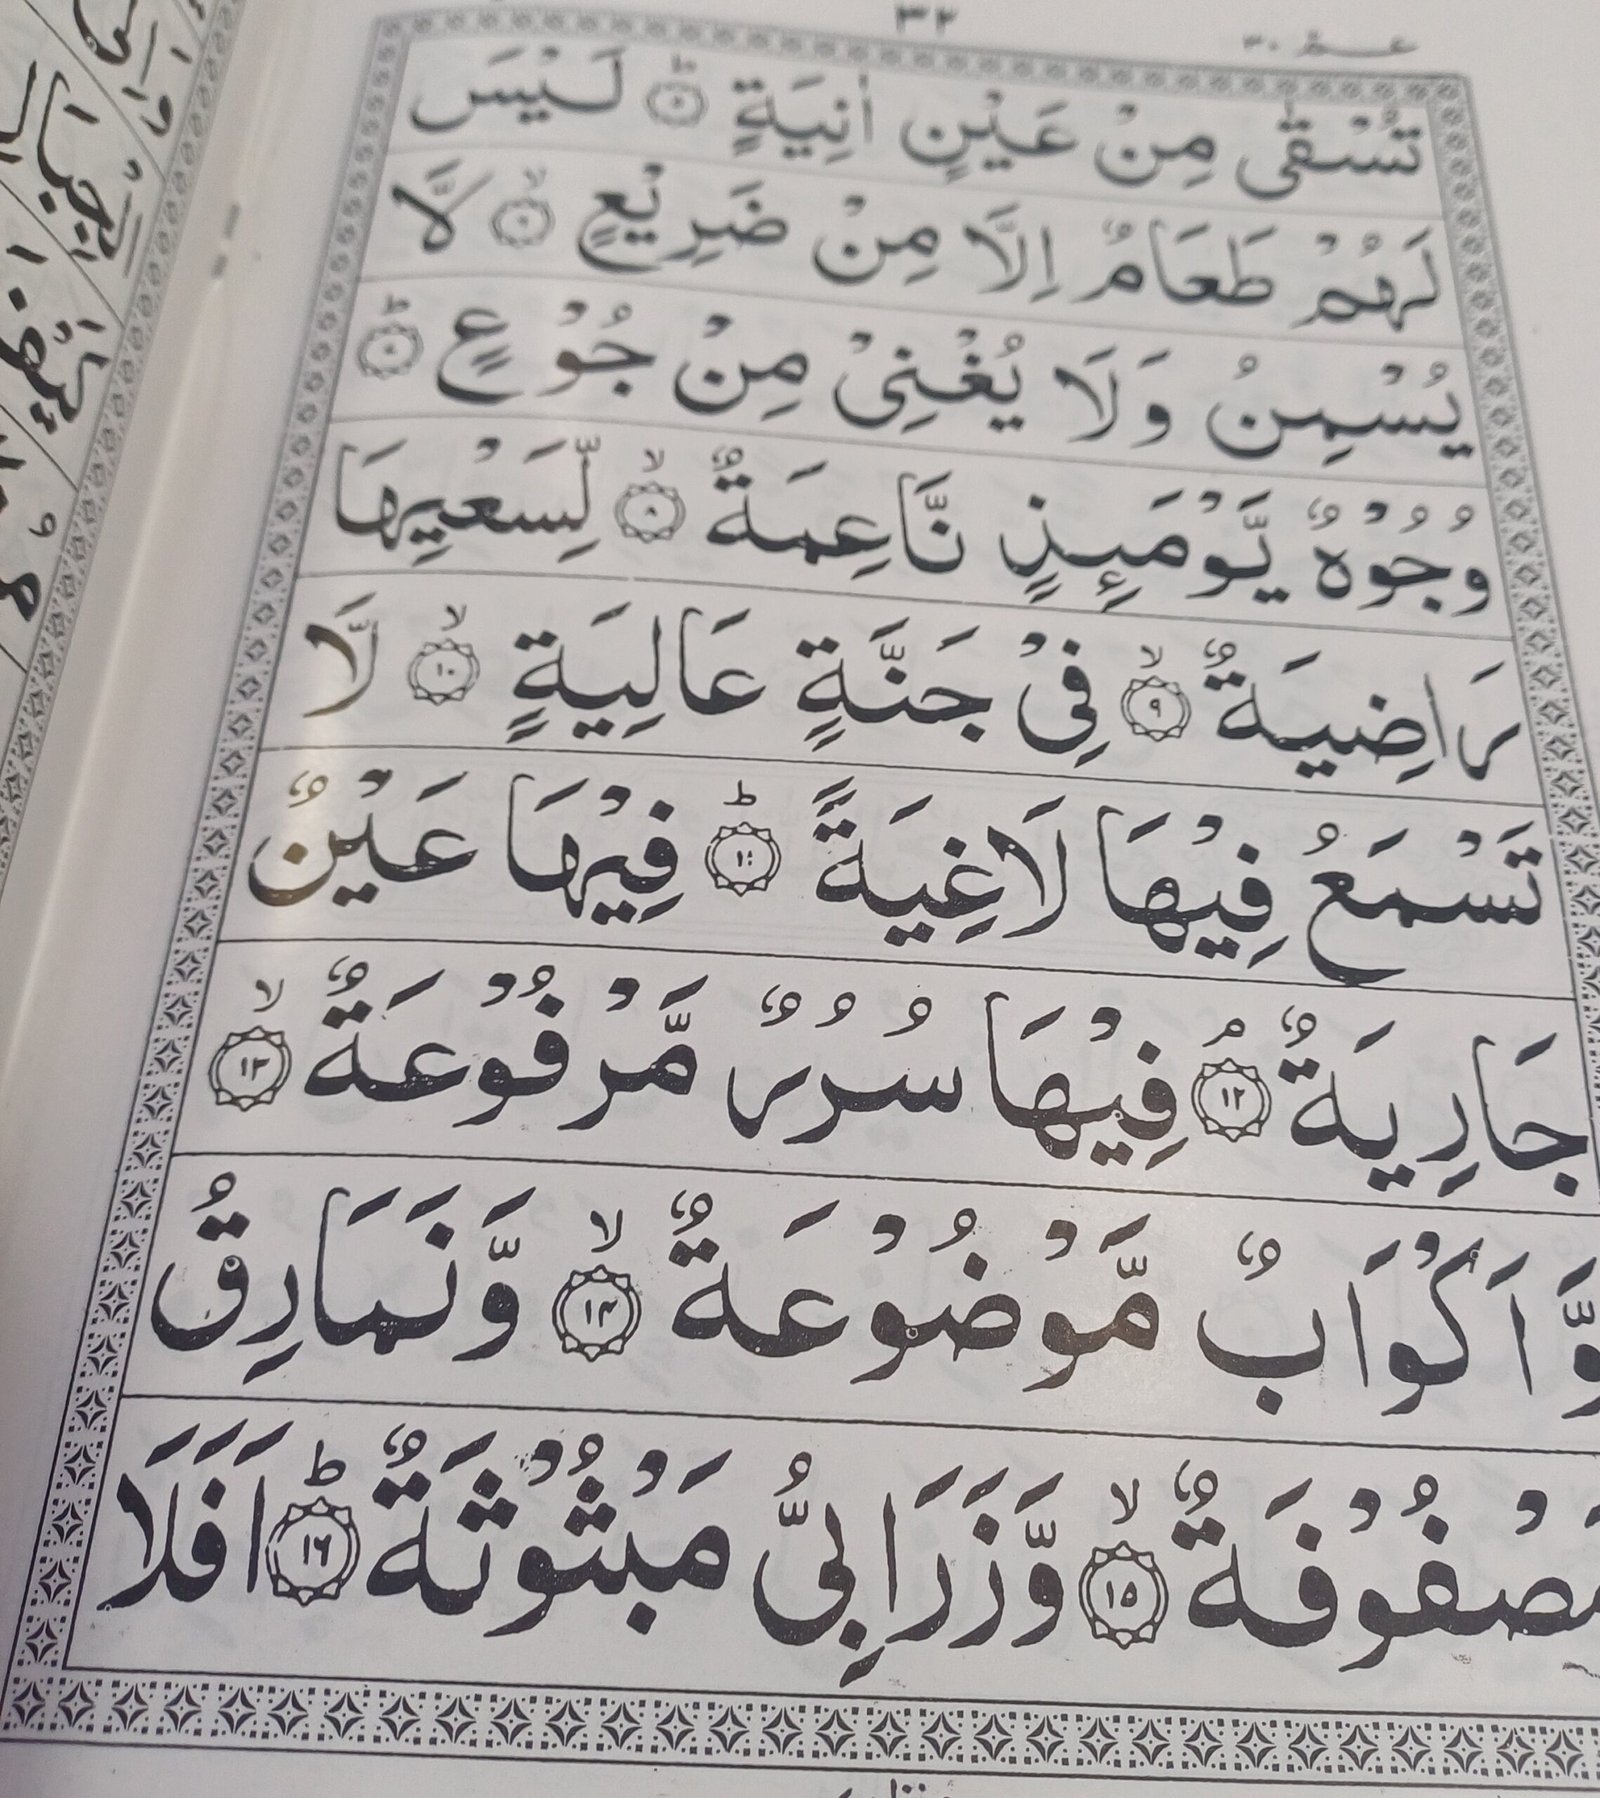 عـــم ٣٠
٣٢
تُسْقٰى مِنْ عَيْنٍ اٰنِيَةٍ ۝٥ؕ لَيْسَ
لَهُمْ طَعَامٌ اِلَّا مِنْ ضَرِيْعٍ ۝٦ۙ لَّا
يُسْمِنُ وَلَا يُغْنِىْ مِنْ جُوْعٍ ۝٧ؕ
وُجُوْهٌ يَّوْمَئِذٍ نَّاعِمَةٌ ۝٨ۙ لِّسَعْيِهَا
رَاضِيَةٌ ۝٩ۙ فِىْ جَنَّةٍ عَالِيَةٍ ۝١٠ۙ لَّا
تَسْمَعُ فِيْهَا لَاغِيَةً ۝١١ؕ فِيْهَا عَيْنٌ
جَارِيَةٌ ۝١٢ۘ فِيْهَا سُرُرٌ مَّرْفُوْعَةٌ ۝١٣ۙ
وَّاَكْوَابٌ مَّوْضُوْعَةٌ ۝١٤ۙ وَّنَمَارِقُ
مَصْفُوْفَةٌ ۝١٥ۙ وَّزَرَابِىُّ مَبْثُوْثَةٌ ۝١٦ؕ اَفَلَا